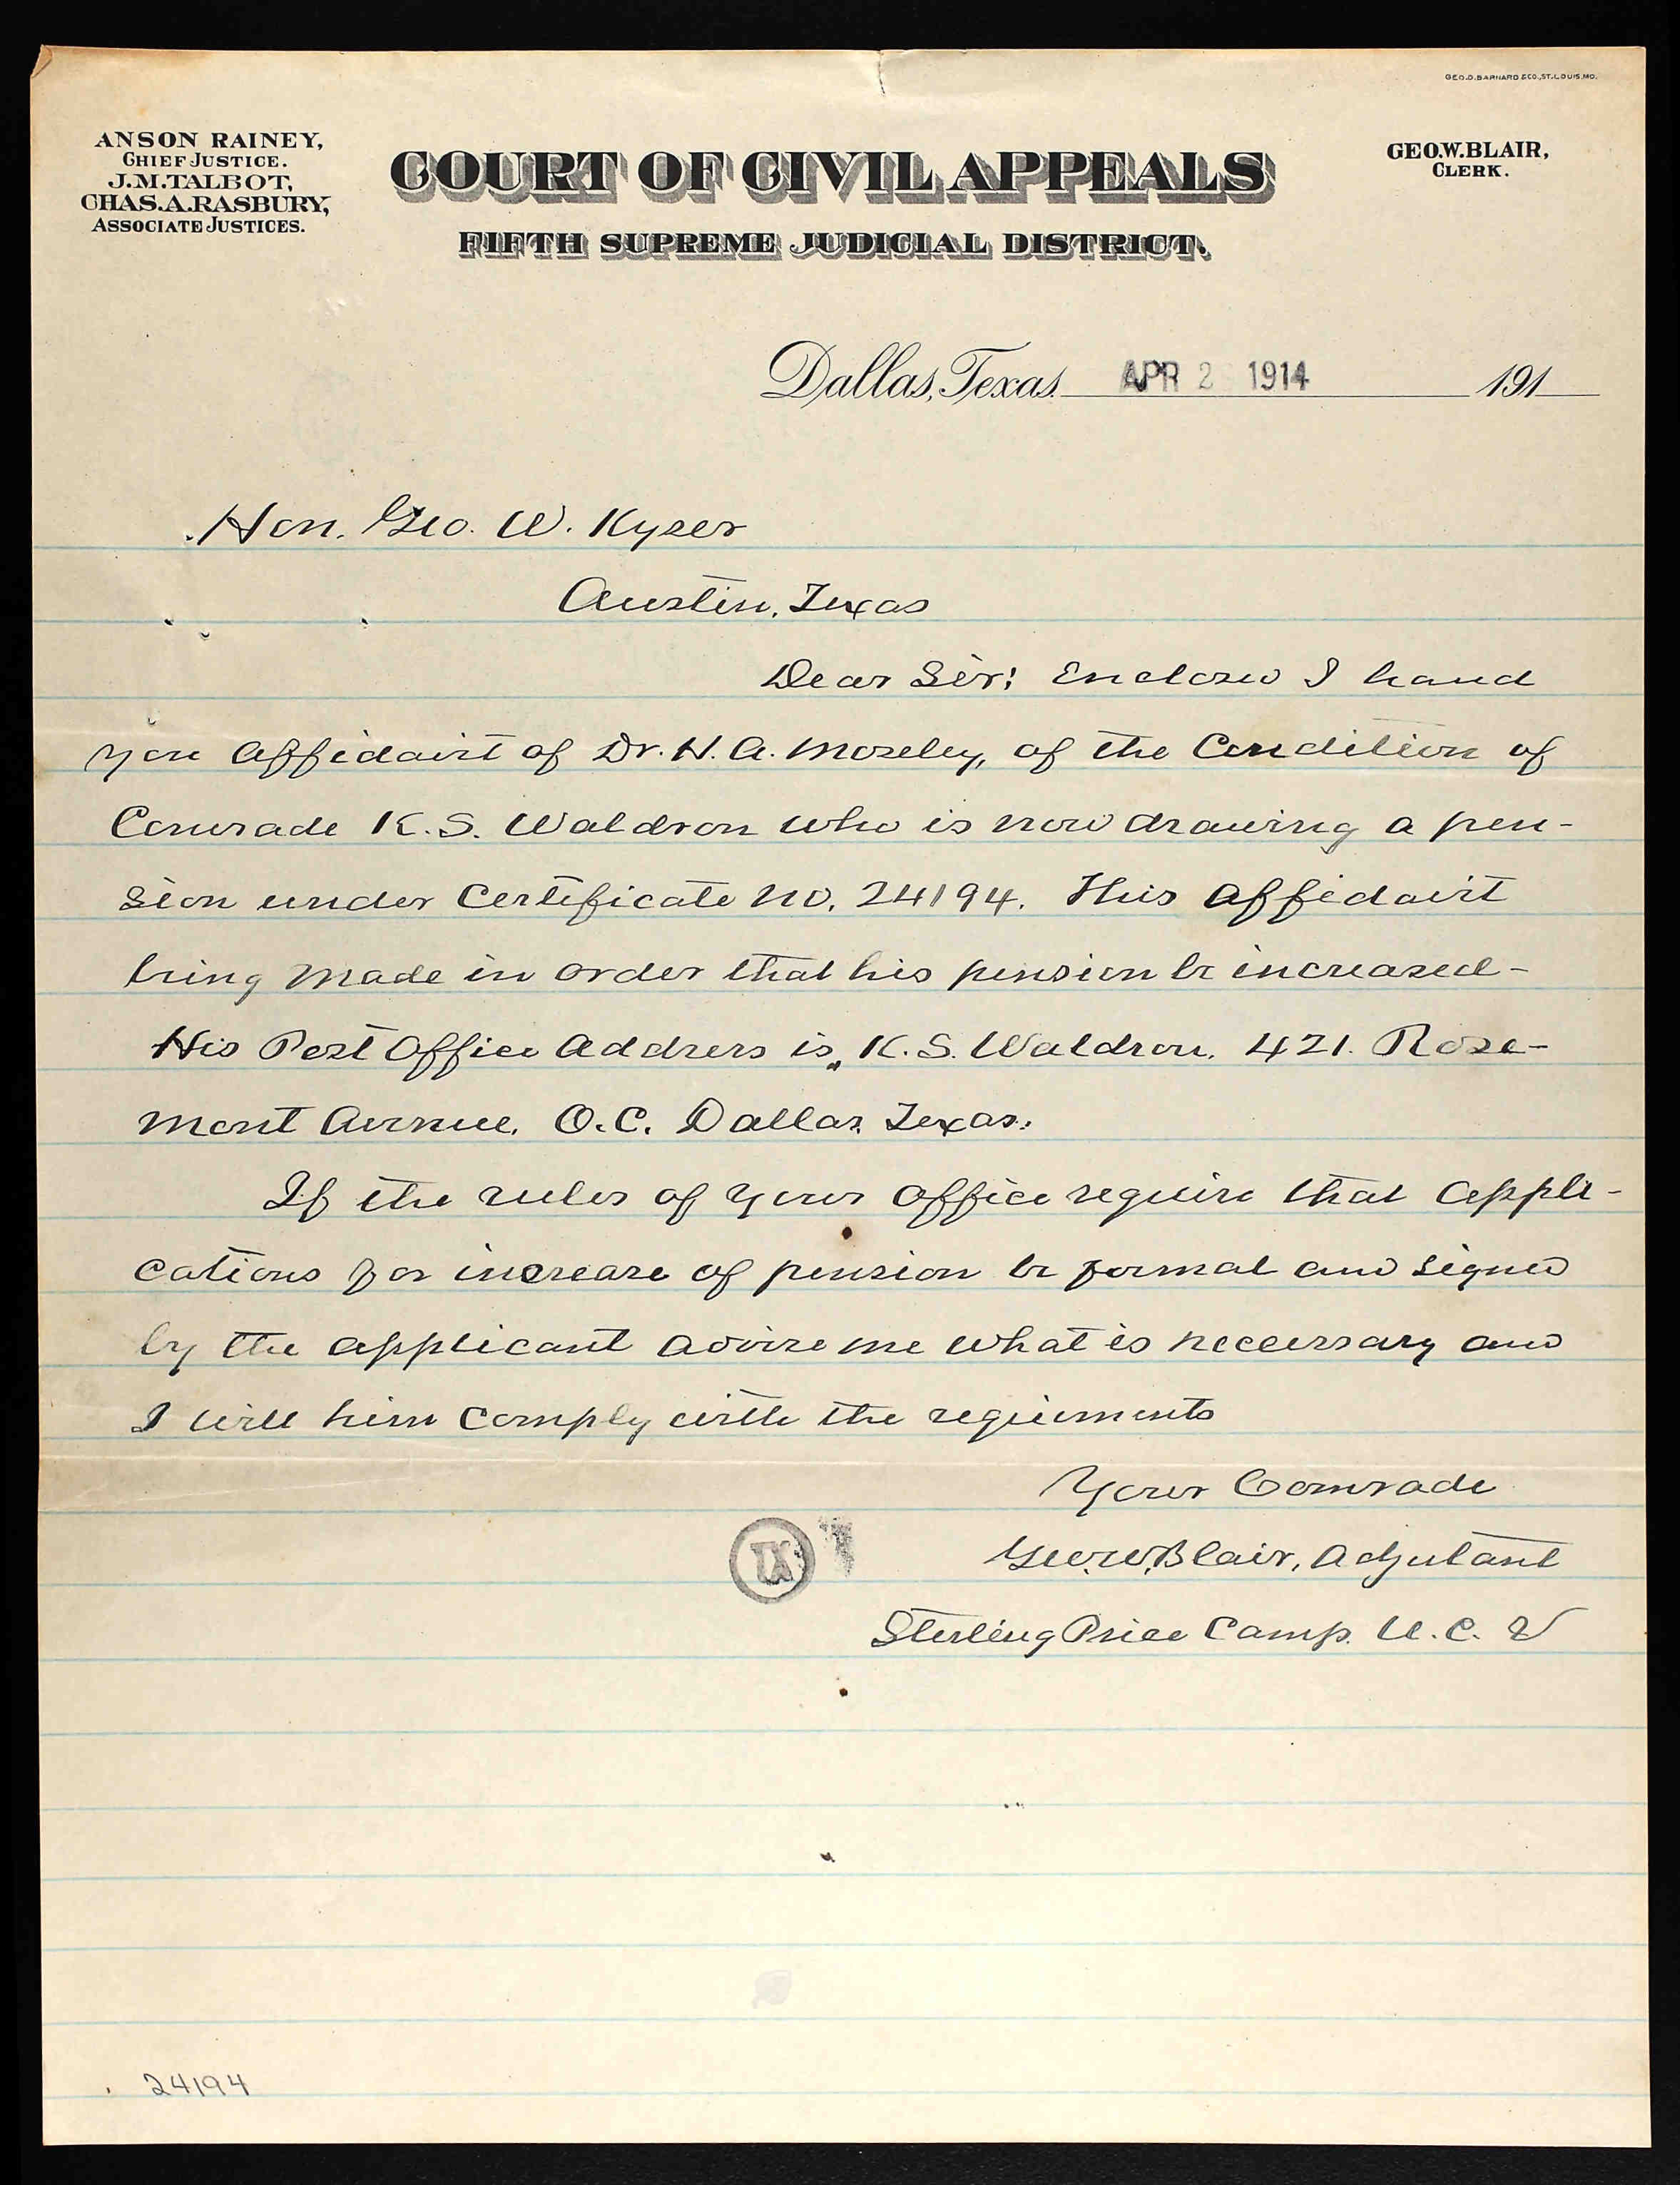 GEO.D.BARNARD & CO., ST. LOUIS, MO.
ANSON RAINEY,
CHIEF JUSTICE.
J.M.TALBOT,
CHAS.A.RASBURY,
ASSOCIATE JUSTICES.
COURT OF CIVIL APPEALS
FIFTH SUPREME JUDICIAL DISTRICT.
GEO.W.BLAIR,
CLERK.
Dallas, Texas. APR 2 1914 191
Hon. Geo. W. Kyser
Austin, Texas
Dear Sir: Enclosed I hand
you affidavit of Dr. H. A. Moseley, of the Condition of
Comrade K. S. Waldron who is now drawing a pen-
sion under Certificate No. 24194. This affidavit
being made in order that his pension be increased-
His Post Office Address is, K. S. Waldron, 421. Rose-
mont Avenue, O. C. Dallas, Texas.
If the rules of your office require that appli-
cations for increase of pension be formal and signed
by the applicant advise me what is necessary and
I will him comply with the requirments
Your Comrade
Geo. W. Blair, Adjutant
Sterling Price Camp. U. C. V
IX
24194